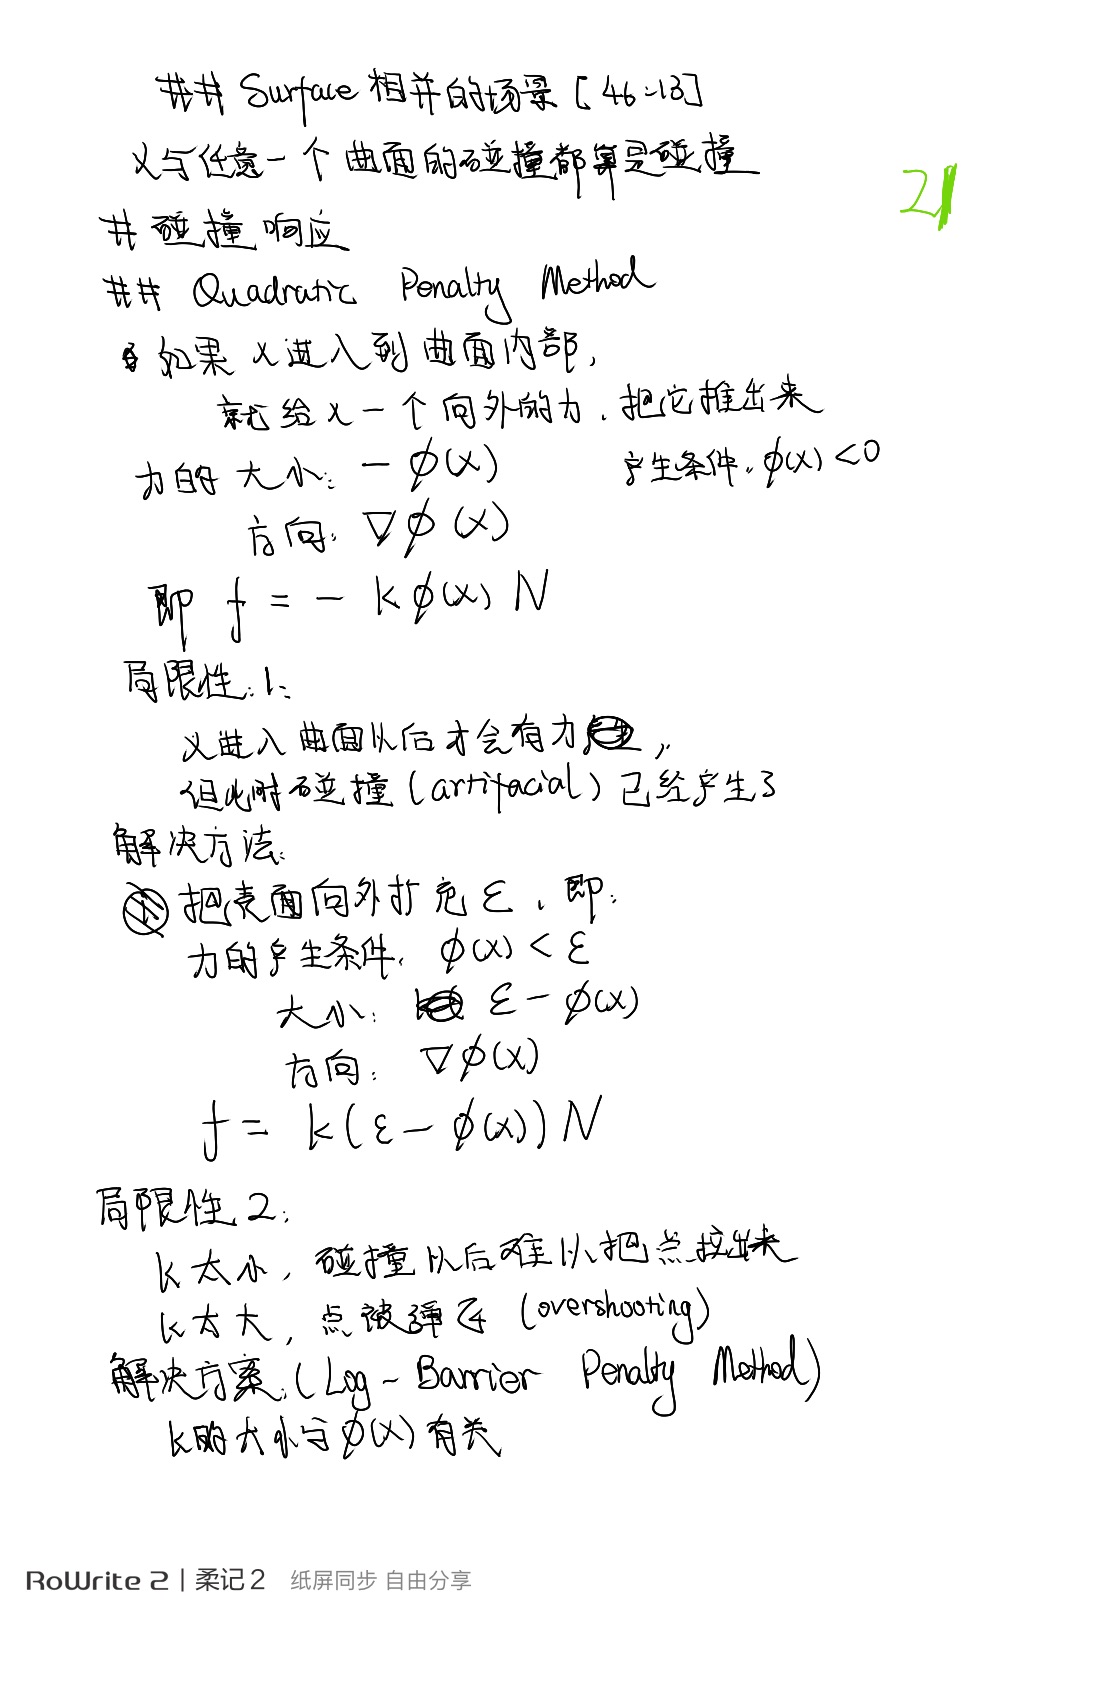 ## Surface 相并的场景 [46:13]
21
x与任意一个曲面的碰撞都算是碰撞
# 碰撞响应
## Quadratic Penalty Method
如果 x进入到曲面内部,
就给x一个向外的力、把它推出来
力的大小: -φ(x) 产生条件: φ(x) <0
方向: ∇φ(x)
即 f = - kφ(x) N
局限性:1:
x进入曲面以后才会有力,
但此时碰撞(artifacial)已经产生了
解决方法:
把表面向外扩充ε、即:
力的产生条件: φ(x) < ε
大小: ε - φ(x)
方向: ∇φ(x)
f = k(ε - φ(x)) N
局限性 2:
k太小, 碰撞以后难以把点拉出来
k太大, 点被弹飞 (overshooting)
解决方案:(Log-Barrier Penalty Method)
k的大小与φ(x)有关
RoWrite 2 | 柔记 2 纸屏同步 自由分享